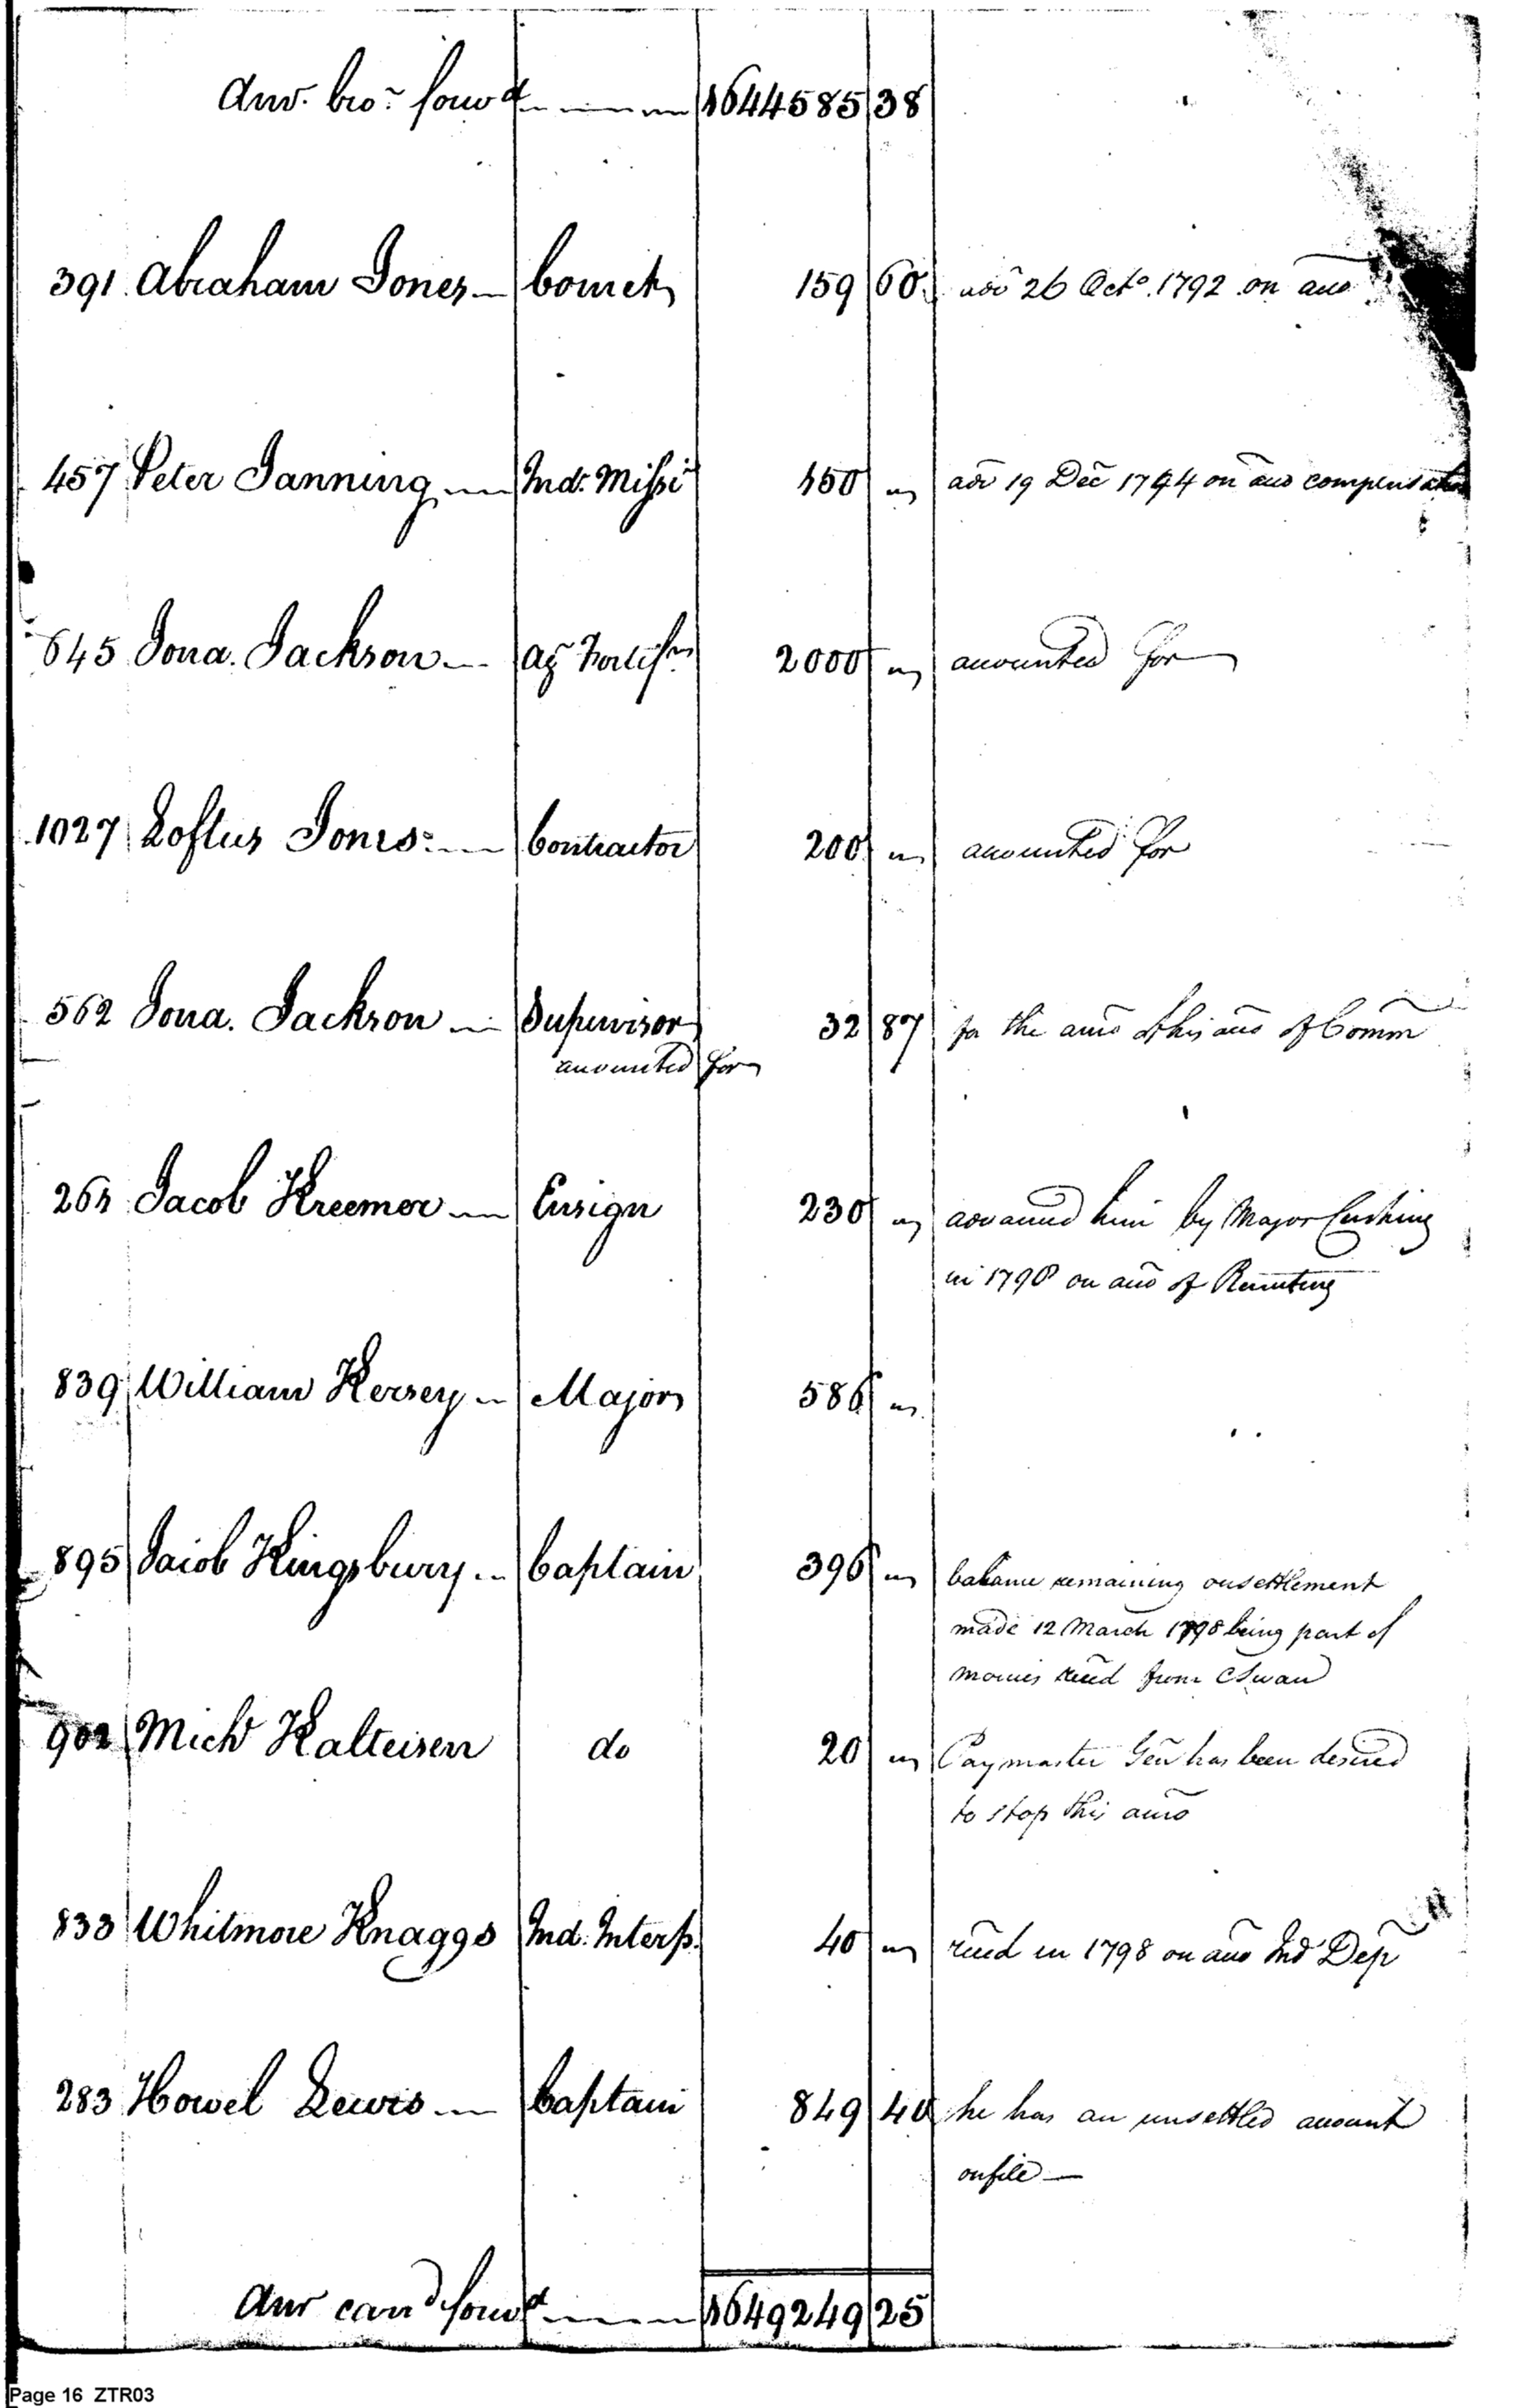 Amt. bro.t forwd 1644585 38
391 Abraham Jones Cornet 159 60 adv 26 Octo. 1792 on acco
457 Peter Janning Indn. Missi 150 adv 19 Dec 1794 on acco compensation
645 Jona. Jackson Ag.t Fortifns 2000 accounted for
1027 Loftus Jones Contractor 200 accounted for
562 Jona. Jackson Supervisor 32 87 for the amo of his acco of Comm
accounted for
264 Jacob Kreemer Ensign 230 advanced him by Major Cushing
in 1790 on acco of Recruiting
839 William Kersey Major 586
895 Jacob Kingsbury Captain 396 balance remaining on settlement
made 12 March 1798 being part of
monies recd from C Swan
902 Michl Kalteisen do 20 Paymaster Genl has been desired
to stop this amo
833 Whitmore Knaggs Ind. Interp. 40 recd in 1798 on acco Ind Dep
283 Howel Lewis Captain 849 40 he has an unsettled account
on file —
Amt card forwd 1649249 25
Page 16 ZTR03